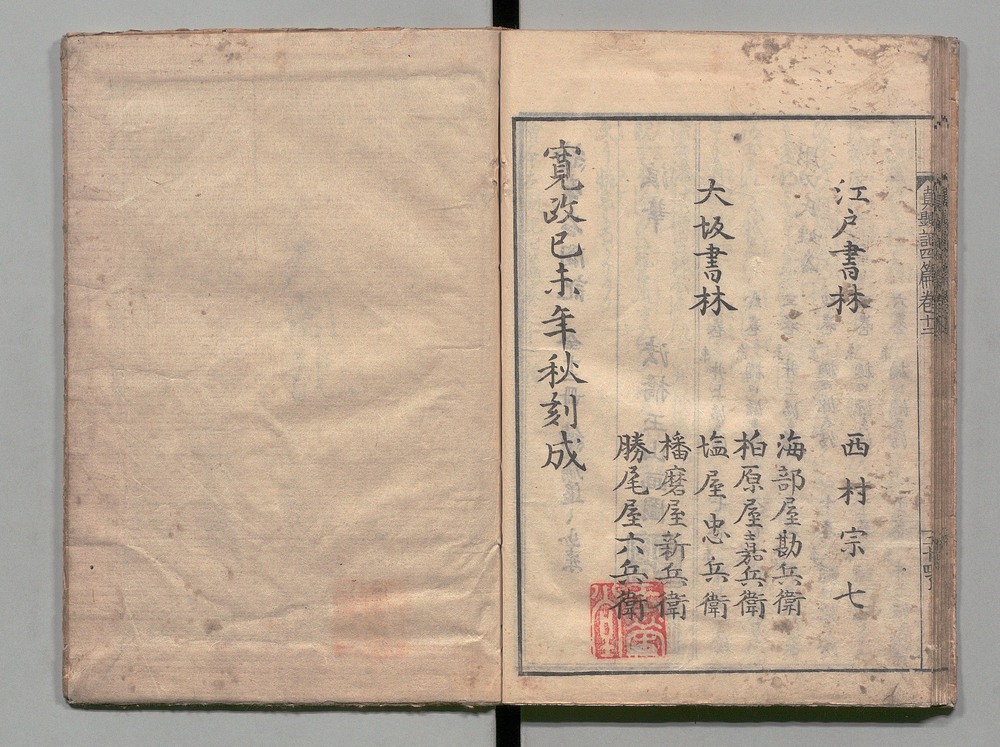 江戸書林 西村宗七
大坂書林
海部屋勘兵衛
柏原屋嘉兵衛
塩屋忠兵衛
播磨屋新兵衛
勝尾屋六兵衛
寛政己未年秋刻成